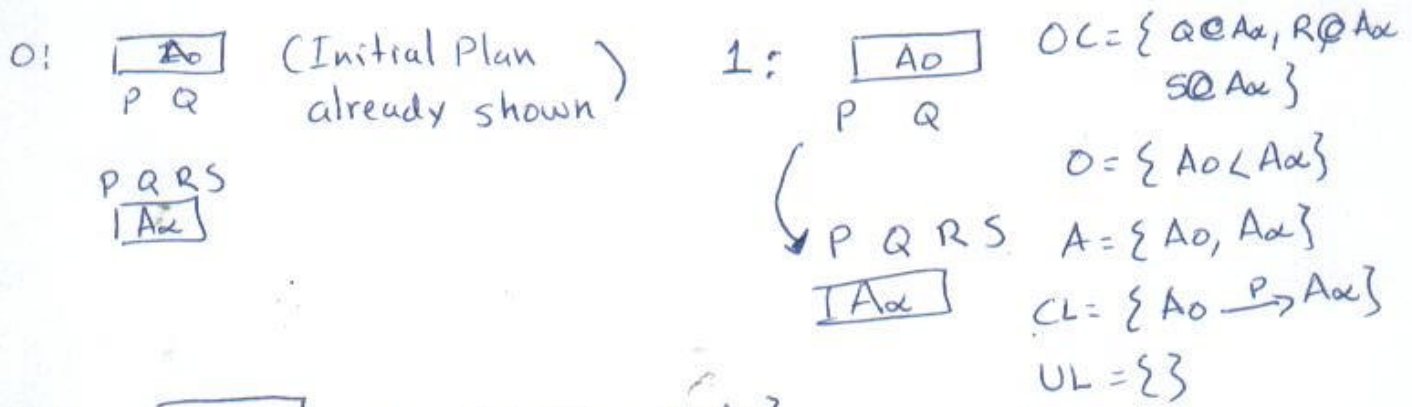 0: A0 (Initial Plan already shown)
P Q
P Q R S
Aα
1: A0
P Q
P Q R S
Aα
OC = { Q@Aα, R@Aα
S@Aα }
O = { A0 < Aα }
A = { A0, Aα }
CL = { A0 —P→ Aα }
UL = { }